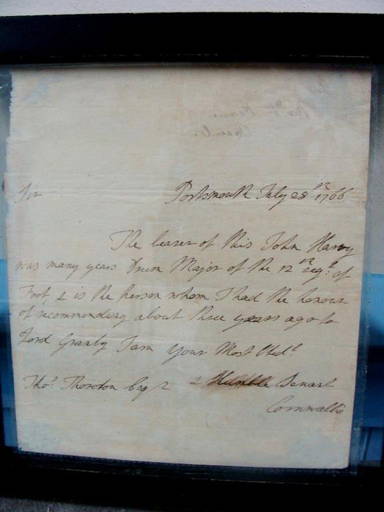 Sir
Portsmouth July 28th 1766
The bearer of this John Harvey
was many years Drum Major of the 12th regt of
Foot, & is the person whom I had the honour
of recommending about three years ago to
Lord Granby I am Your Most Obedt
Thos Thoroton Esqr & Humble Servant
Cornwallis